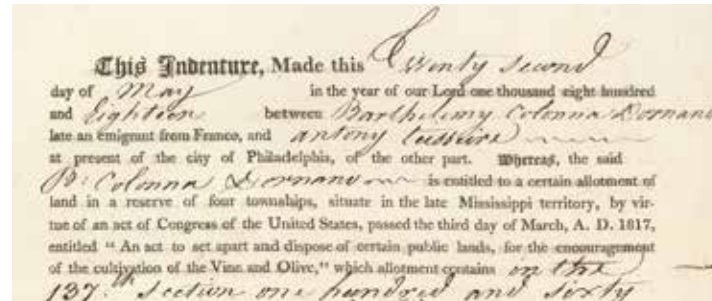 This Indenture, Made this Twenty second
day of May in the year of our Lord one thousand eight hundred
and Eighteen between Barthelemy Colonna Dornano
late an emigrant from France, and antony
at present of the city of Philadelphia, of the other part. Whereas, the said
B. Colonna Dornano is entitled to a certain allotment of
land in a reserve of four townships, situate in the late Mississippi territory, by vir-
tue of an act of Congress of the United States, passed the third day of March, A. D. 1817,
entitled “ An act to set apart and dispose of certain public lands, for the encouragement
of the cultivation of the Vine and Olive,” which allotment contains in the
137th section one hundred and sixty